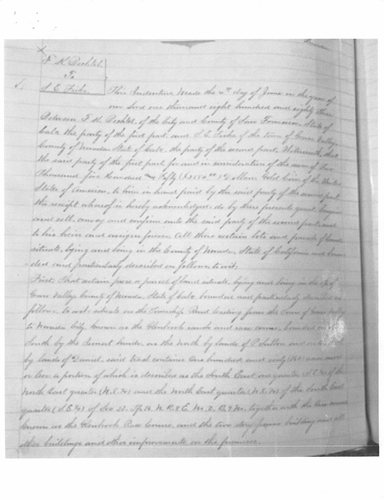 To
This Indenture, Made the 4th day of June in the year of
our Lord one thousand eight hundred and eighty three
Between F. H. of the City and County of San Francisco State of
Cala. the party of the first part and S. E. of the town of Grass Valley
County of Nevada State of Cala. the party of the second part, Witnesseth, that
the said party of the first part for and in consideration of the sum of
Thousand five hundred and Fifty Dollars Gold Coin of the United
States of America, to him in hand paid by the said party of the second part
the receipt whereof is hereby acknowledged, do by these presents grant,
and sell, convey and confirm unto the said party of the second part, and
to his heirs and assigns forever all those certain lots and parcels of land
situate, lying and being in the County of Nevada, State of California and boun-
ded and particularly described as follows to wit:
First: That certain piece or parcel of land situate, lying and being in the of
Grass Valley County of Nevada State of Cala. bounded and particularly described as
follows to wit: situate on the Road leading from the town of Grass Valley
to Nevada City known as the Glenbrook and race course, bounded on the
South by the on the North by lands of and
by lands of said tract contains One hundred and sixty (160) acres more
or less a portion of which is described as the South East quarter S.E. 1/4 of the
North East quarter (N.E. 1/4) and the North East quarter (N.E. 1/4) of the South East
quarter (S.E. 1/4) of Sec together with the race course
known as the Glenbrook Race Course, and the two story frame building and all
other buildings and other improvements on the premises